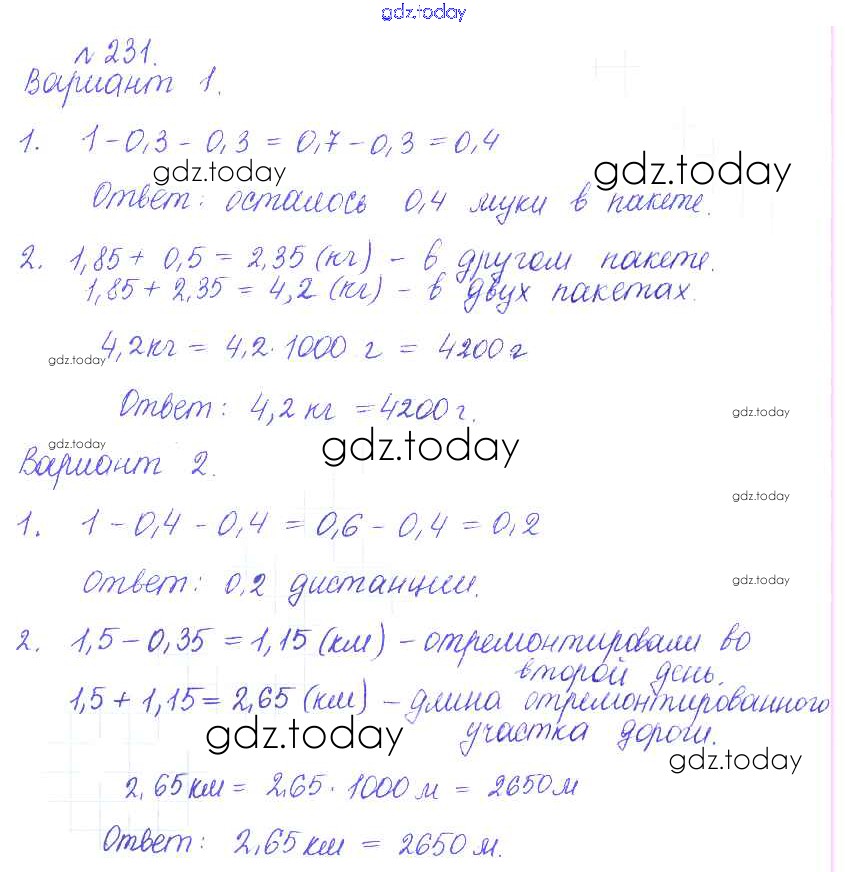 gdz.today
№ 231.
Вариант 1.
1. 1 - 0,3 - 0,3 = 0,7 - 0,3 = 0,4
gdz.today gdz.today
Ответ: осталось 0,4 муки в пакете.
2. 1,85 + 0,5 = 2,35 (кг) - в другом пакете.
1,85 + 2,35 = 4,2 (кг) - в двух пакетах.
4,2 кг = 4,2 · 1000 г = 4200 г
gdz.today
Ответ: 4,2 кг = 4200 г.
gdz.today
gdz.today gdz.today
Вариант 2.
gdz.today
1. 1 - 0,4 - 0,4 = 0,6 - 0,4 = 0,2
Ответ: 0,2 дистанции.
gdz.today
2. 1,5 - 0,35 = 1,15 (км) - отремонтировали во
второй день.
1,5 + 1,15 = 2,65 (км) - длина отремонтированного
участка дороги.
gdz.today gdz.today
2,65 км = 2,65 · 1000 м = 2650 м
Ответ: 2,65 км = 2650 м.